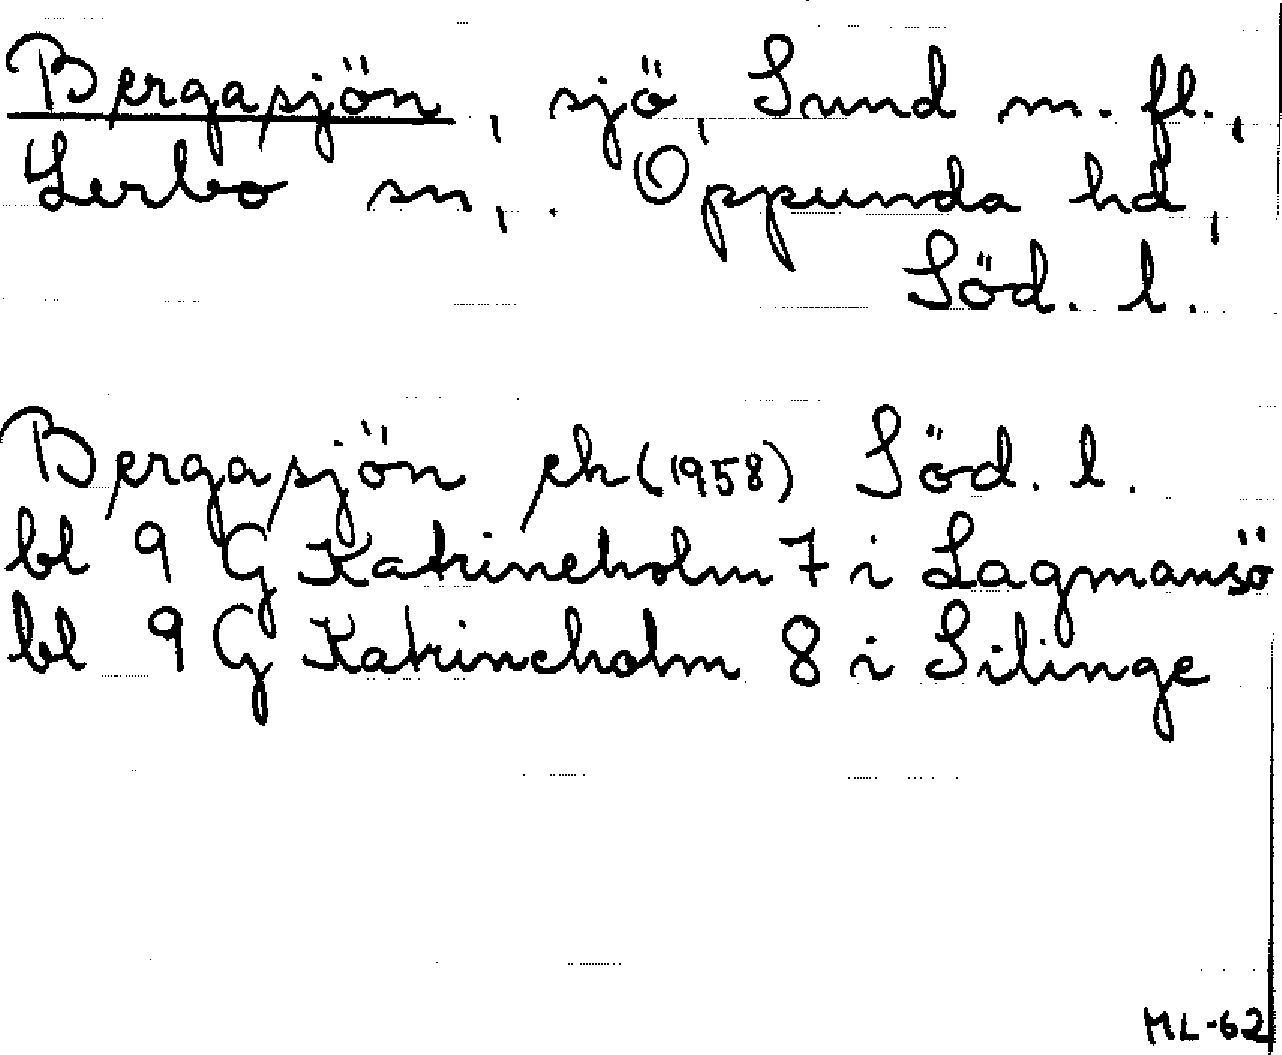 Bergasjön, sjö, Sund m. fl.,
Lerbo sn,. Oppunda hd,
Söd. l.
Bergasjön ek (1958) Söd. l.
bl 9 G Katrineholm 7 i Lagmansö
bl 9 G Katrineholm 8 i Silinge
ML-62